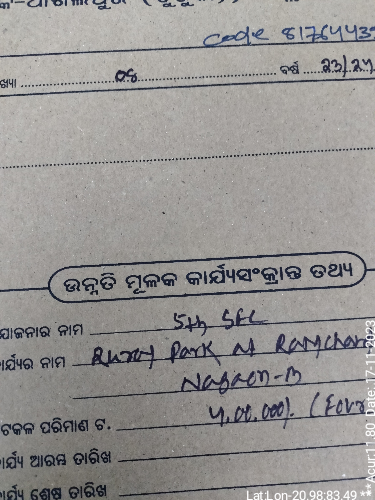 code 8176443
ଖ୍ୟା 08 ବର୍ଷ 23/24
ଉନ୍ନତି ମୂଳକ କାର୍ଯ୍ୟସଂକ୍ରାନ୍ତ ତଥ୍ୟ
ଯୋଜନାର ନାମ 5th SFC
ାର୍ଯ୍ୟର ନାମ Rural Park at Ramchan
Nagaon-B
ଟକଳ ପରିମାଣ ଟ. 4,00,000/. (Four
ାର୍ଯ୍ୟ ଆରମ୍ଭ ତାରିଖ
ାର୍ଯ୍ୟ ଶେଷ ତାରିଖ
Lat:Lon-20.98:83.49 *** Acur:11.80 Date:17-11-2023